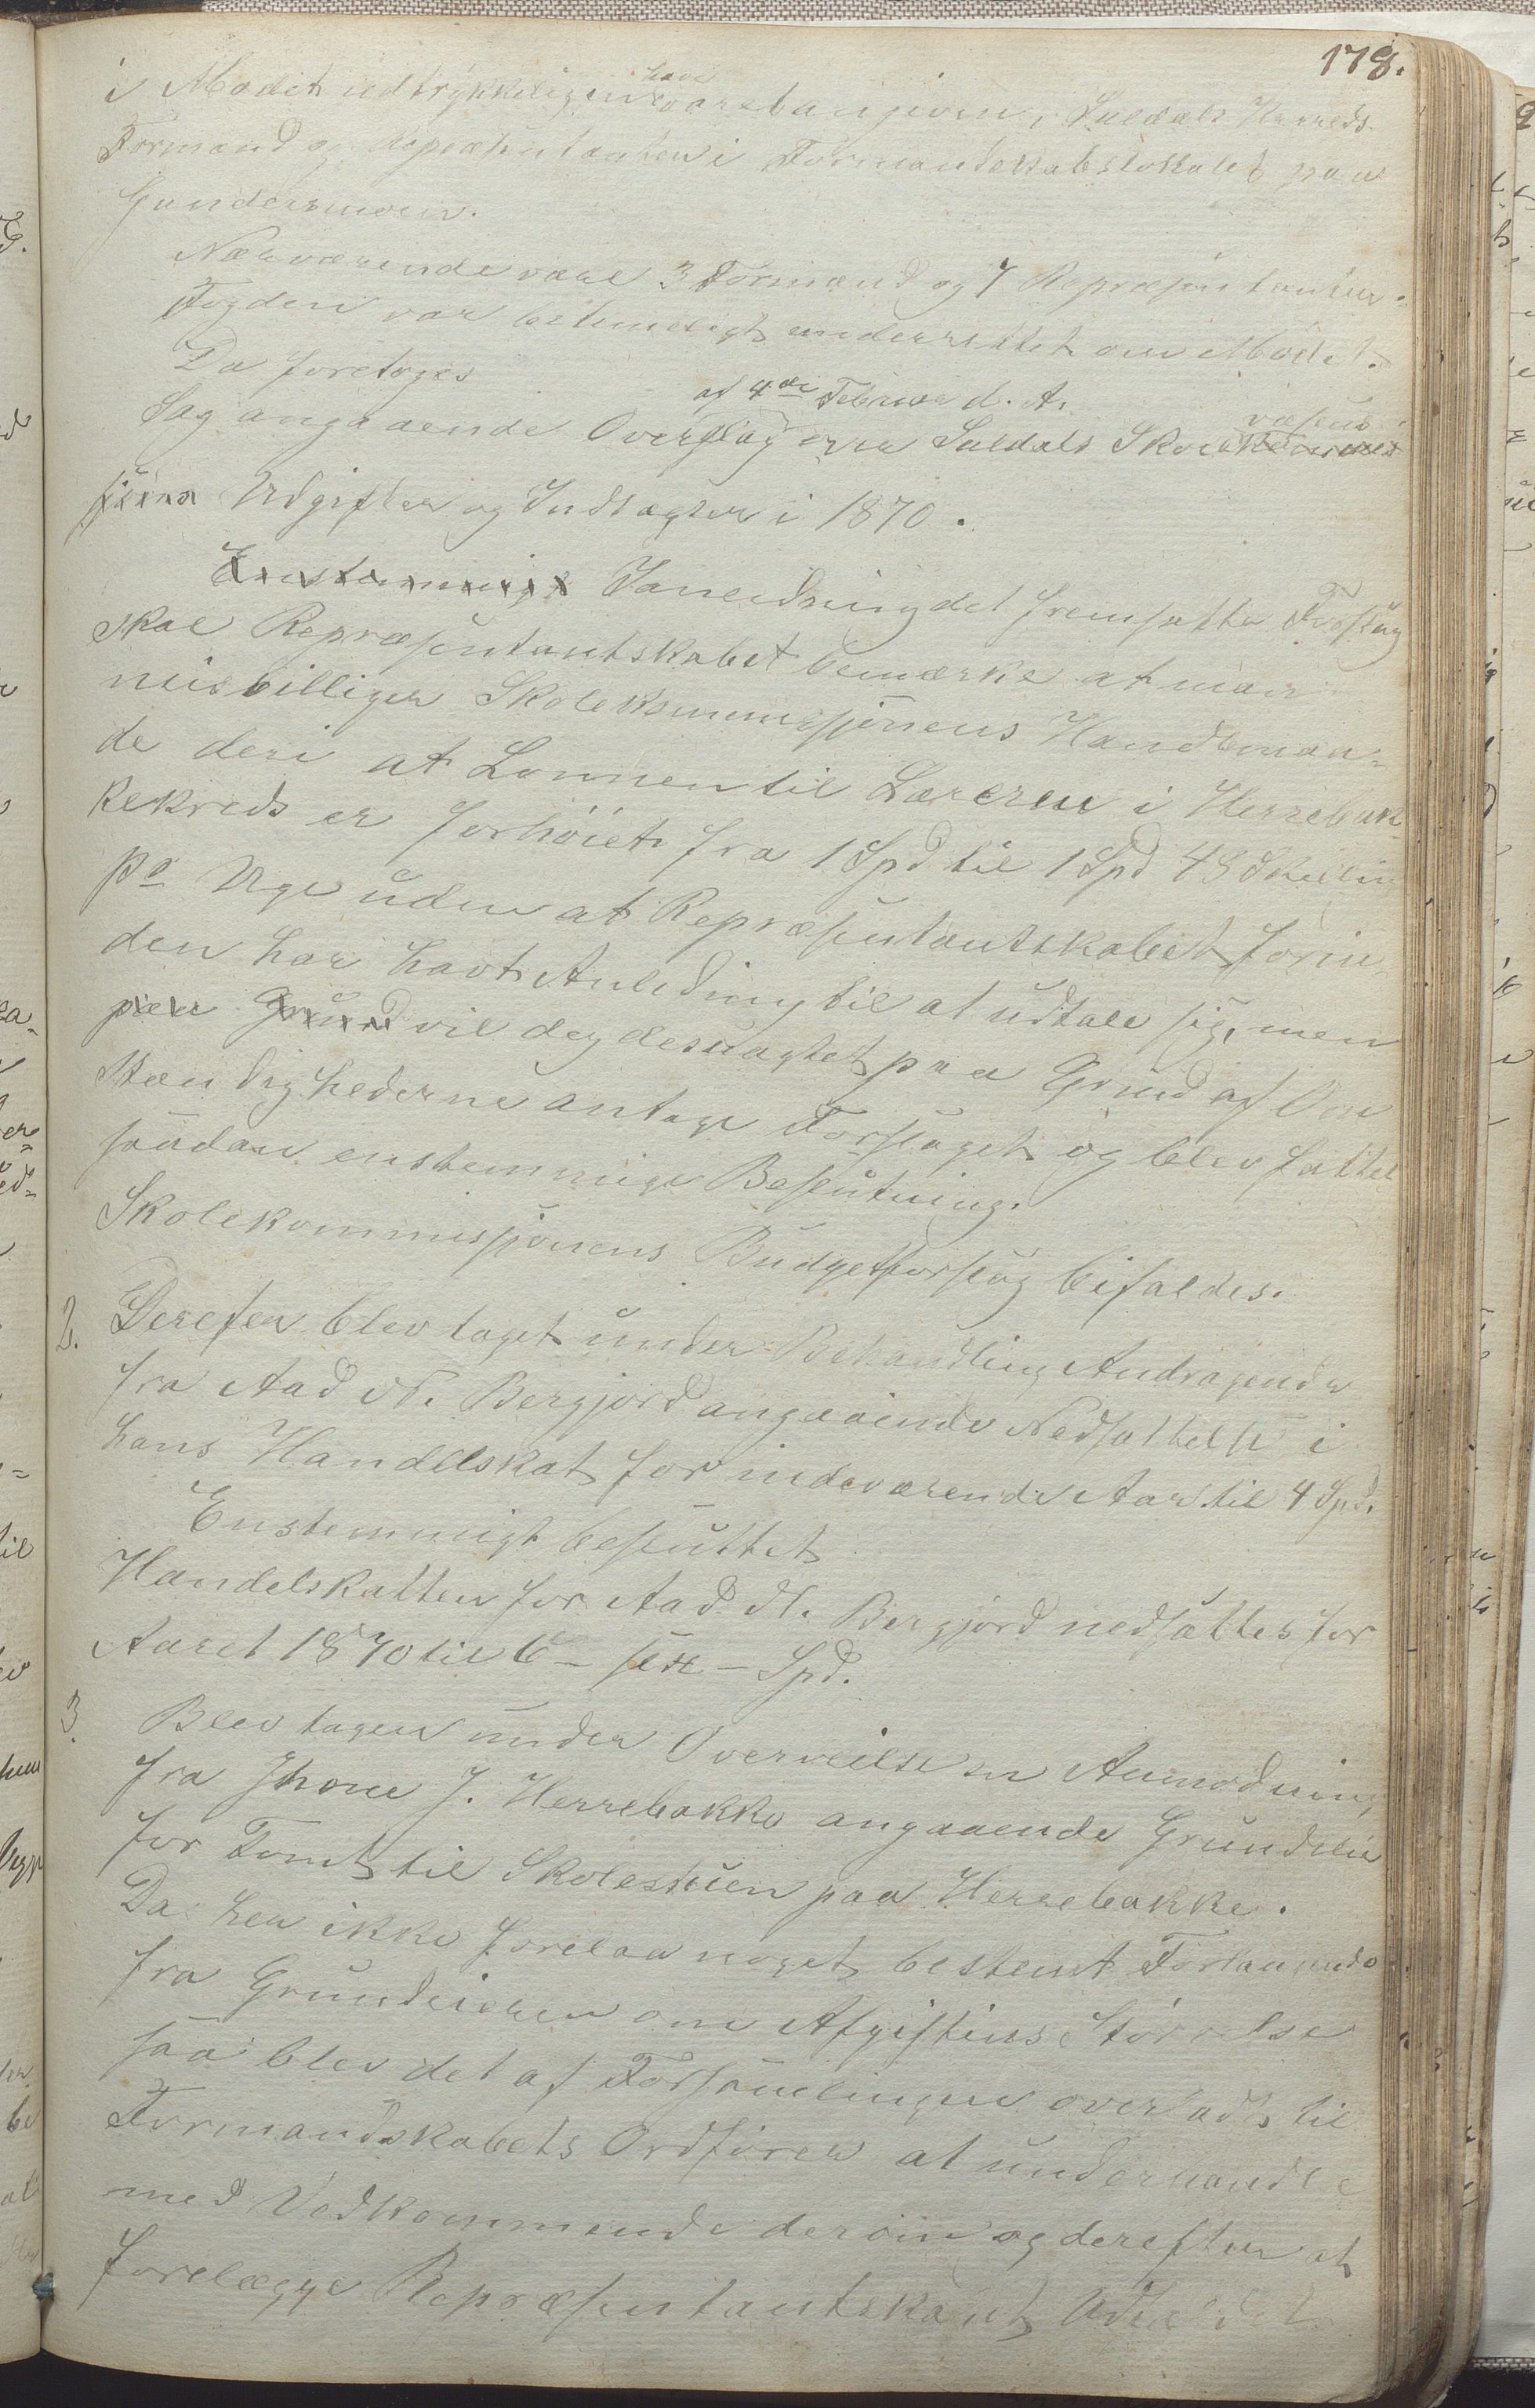 178.
i Mødet udtrykkeligen have været angiven, Suldals Herreds
Formænd og Repræsentanter i Formandskabslokalet paa
Gundersmoen.
Nærværende vare 3 Formænd og 7 Repræsentanter.
Fogden var betimeligt underrettet om Mødet.
Da foretoges
af 4de Februar d. A.
væsens
Sag angaaende Overslag over Suldals Skole
Udgifter og Indtægter i 1870.
Enstemmigt I anledning det fremsatte Forslag
skal Repræsentantskabet bemærke at man
misbilliger Skolekommissjonens Handlemaa-
de deri at Lønnen til Læreren i Herrebak-
kekreds er forhøiet fra 1 Spd til 1 Spd 48 Skilling
pr Uge uden at Repræsentantskabet forin-
den har havt Anledning til at udtale sig, men
paa Grund vil dog desuagtet paa Grund af Om
stændighederne antage Forslaget og blev fattet
saadan enstemmige Beslutning.
Skolekommissjonens Budgetforslag bifaldes.
2. Derefter blev taget under Behandling Andragende
fra Aad N. Bergjord angaaende Nedsættelse i
hans Handelskat for indeværende Aar til 4 Spd.
Enstemmigt besluttet
Handelskatten for Aad N. Bergjord nedsættes for
Aaret 1870 til 6 - sex - Spd.
3. Blev tagen under Overveielse en Anmodning
fra Jhone J. Herrebakke angaaende Grundleie
for Tomt til Skolestuen paa Herrebakke.
Da her ikke forelaa noget bestemt Forlangende
fra Grundeieren om Afgiftens Størrelse
saa blev det af Forsamlingen overladt til
Formandskabets Ordfører at underhandle
med Vedkommende derom og derefter at
forelægge Repræsentantskabet Udfaldet